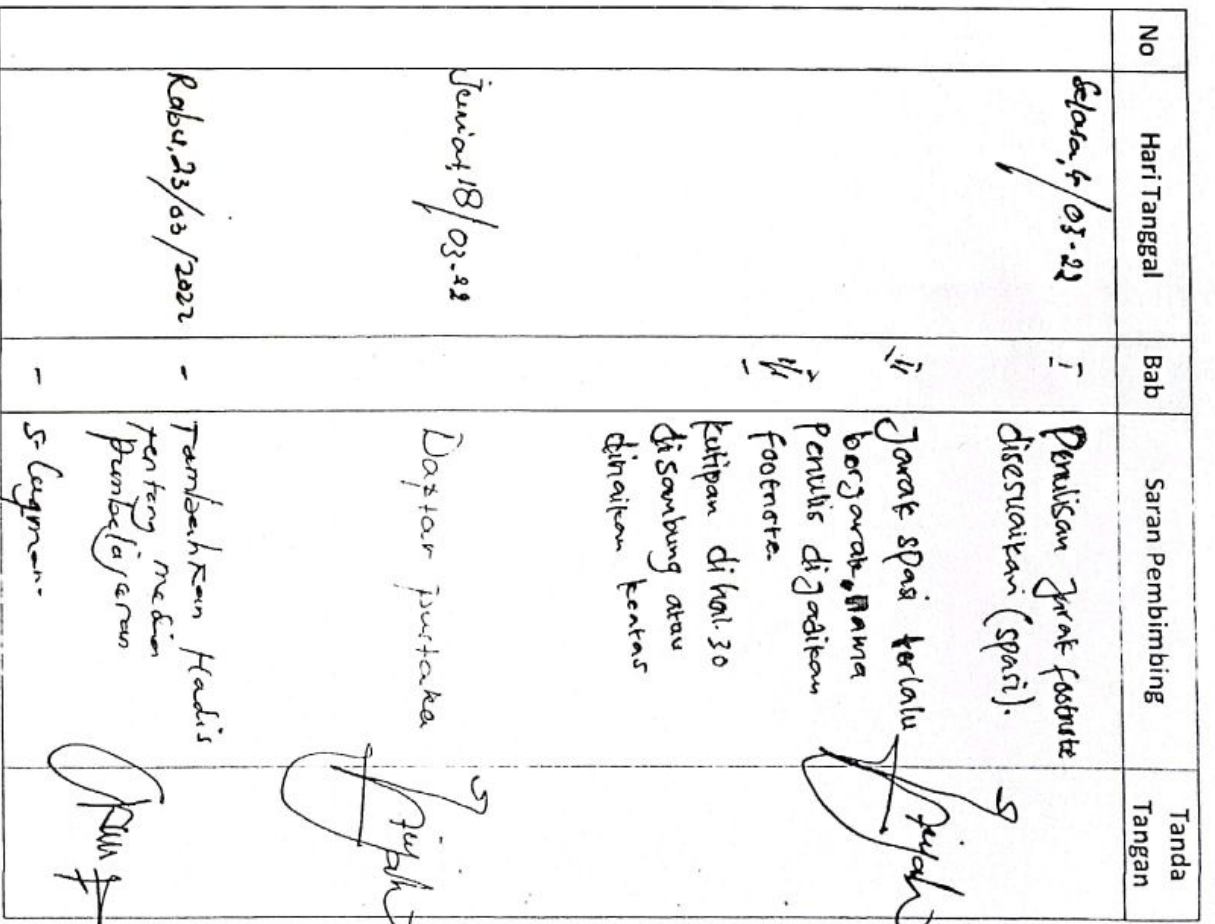 No Hari Tanggal Bab Saran Pembimbing Tanda Tangan
Selasa, /03-22 I Penulisan Jarak footnote
disesuaikan (spasi).
Jarak spasi terlalu
bergarak, Nama
Penulis digadikan
footnote.
kutipan di hal. 30
disambung atau
dinaikan keatas
Jum'at, 18/03-22 Daftar pustaka
Rabu, 23/03/2022 - Tambahkan Hadis
tentang media
pembelajaran
-